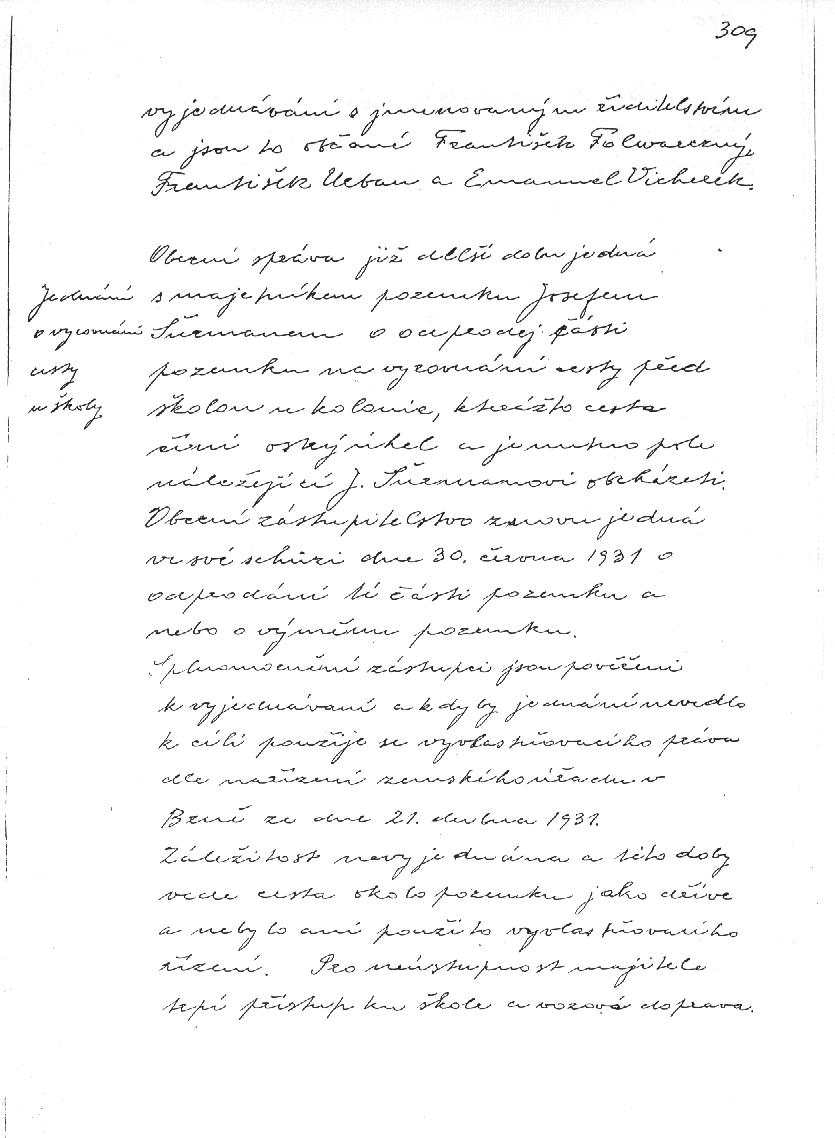 309
vyjednávání s jmenovaným ředitelstvím
a jsou to občané František Folwarczný,
František Urban a Emanuel Vicherek.
Obecní správa již delší dobu jedná
Jednání
s majetníkem pozemku Josefem
o vyrovnání
Šurmanem o odprodej části
cesty
pozemku na vyrovnání cesty před
u školy
školou u kolonie, kterážto cesta
činí ostrý úhel a je nutno pole
náležející J. Šurmanovi obcházeti.
Obecní zástupitelstvo znovu jedná
ve své schůzi dne 30. června 1931 o
odprodání té části pozemku a
nebo o výměnu pozemku.
Splnomocnění zástupci jsou pověřeni
k vyjednávaní a kdyby jednání nevedlo
k cíli použije se vyvlastňovacího práva
dle nařízení zemského úřadu v
Brně ze dne 21. dubna 1931.
Záležitost nevyjednána a této doby
vede cesta okolo pozemku jako dříve
a nebylo ani použito vyvlastňovacího
řízení. Pro neústupnost majitele
trpí přístup ku škole a vozová doprava.